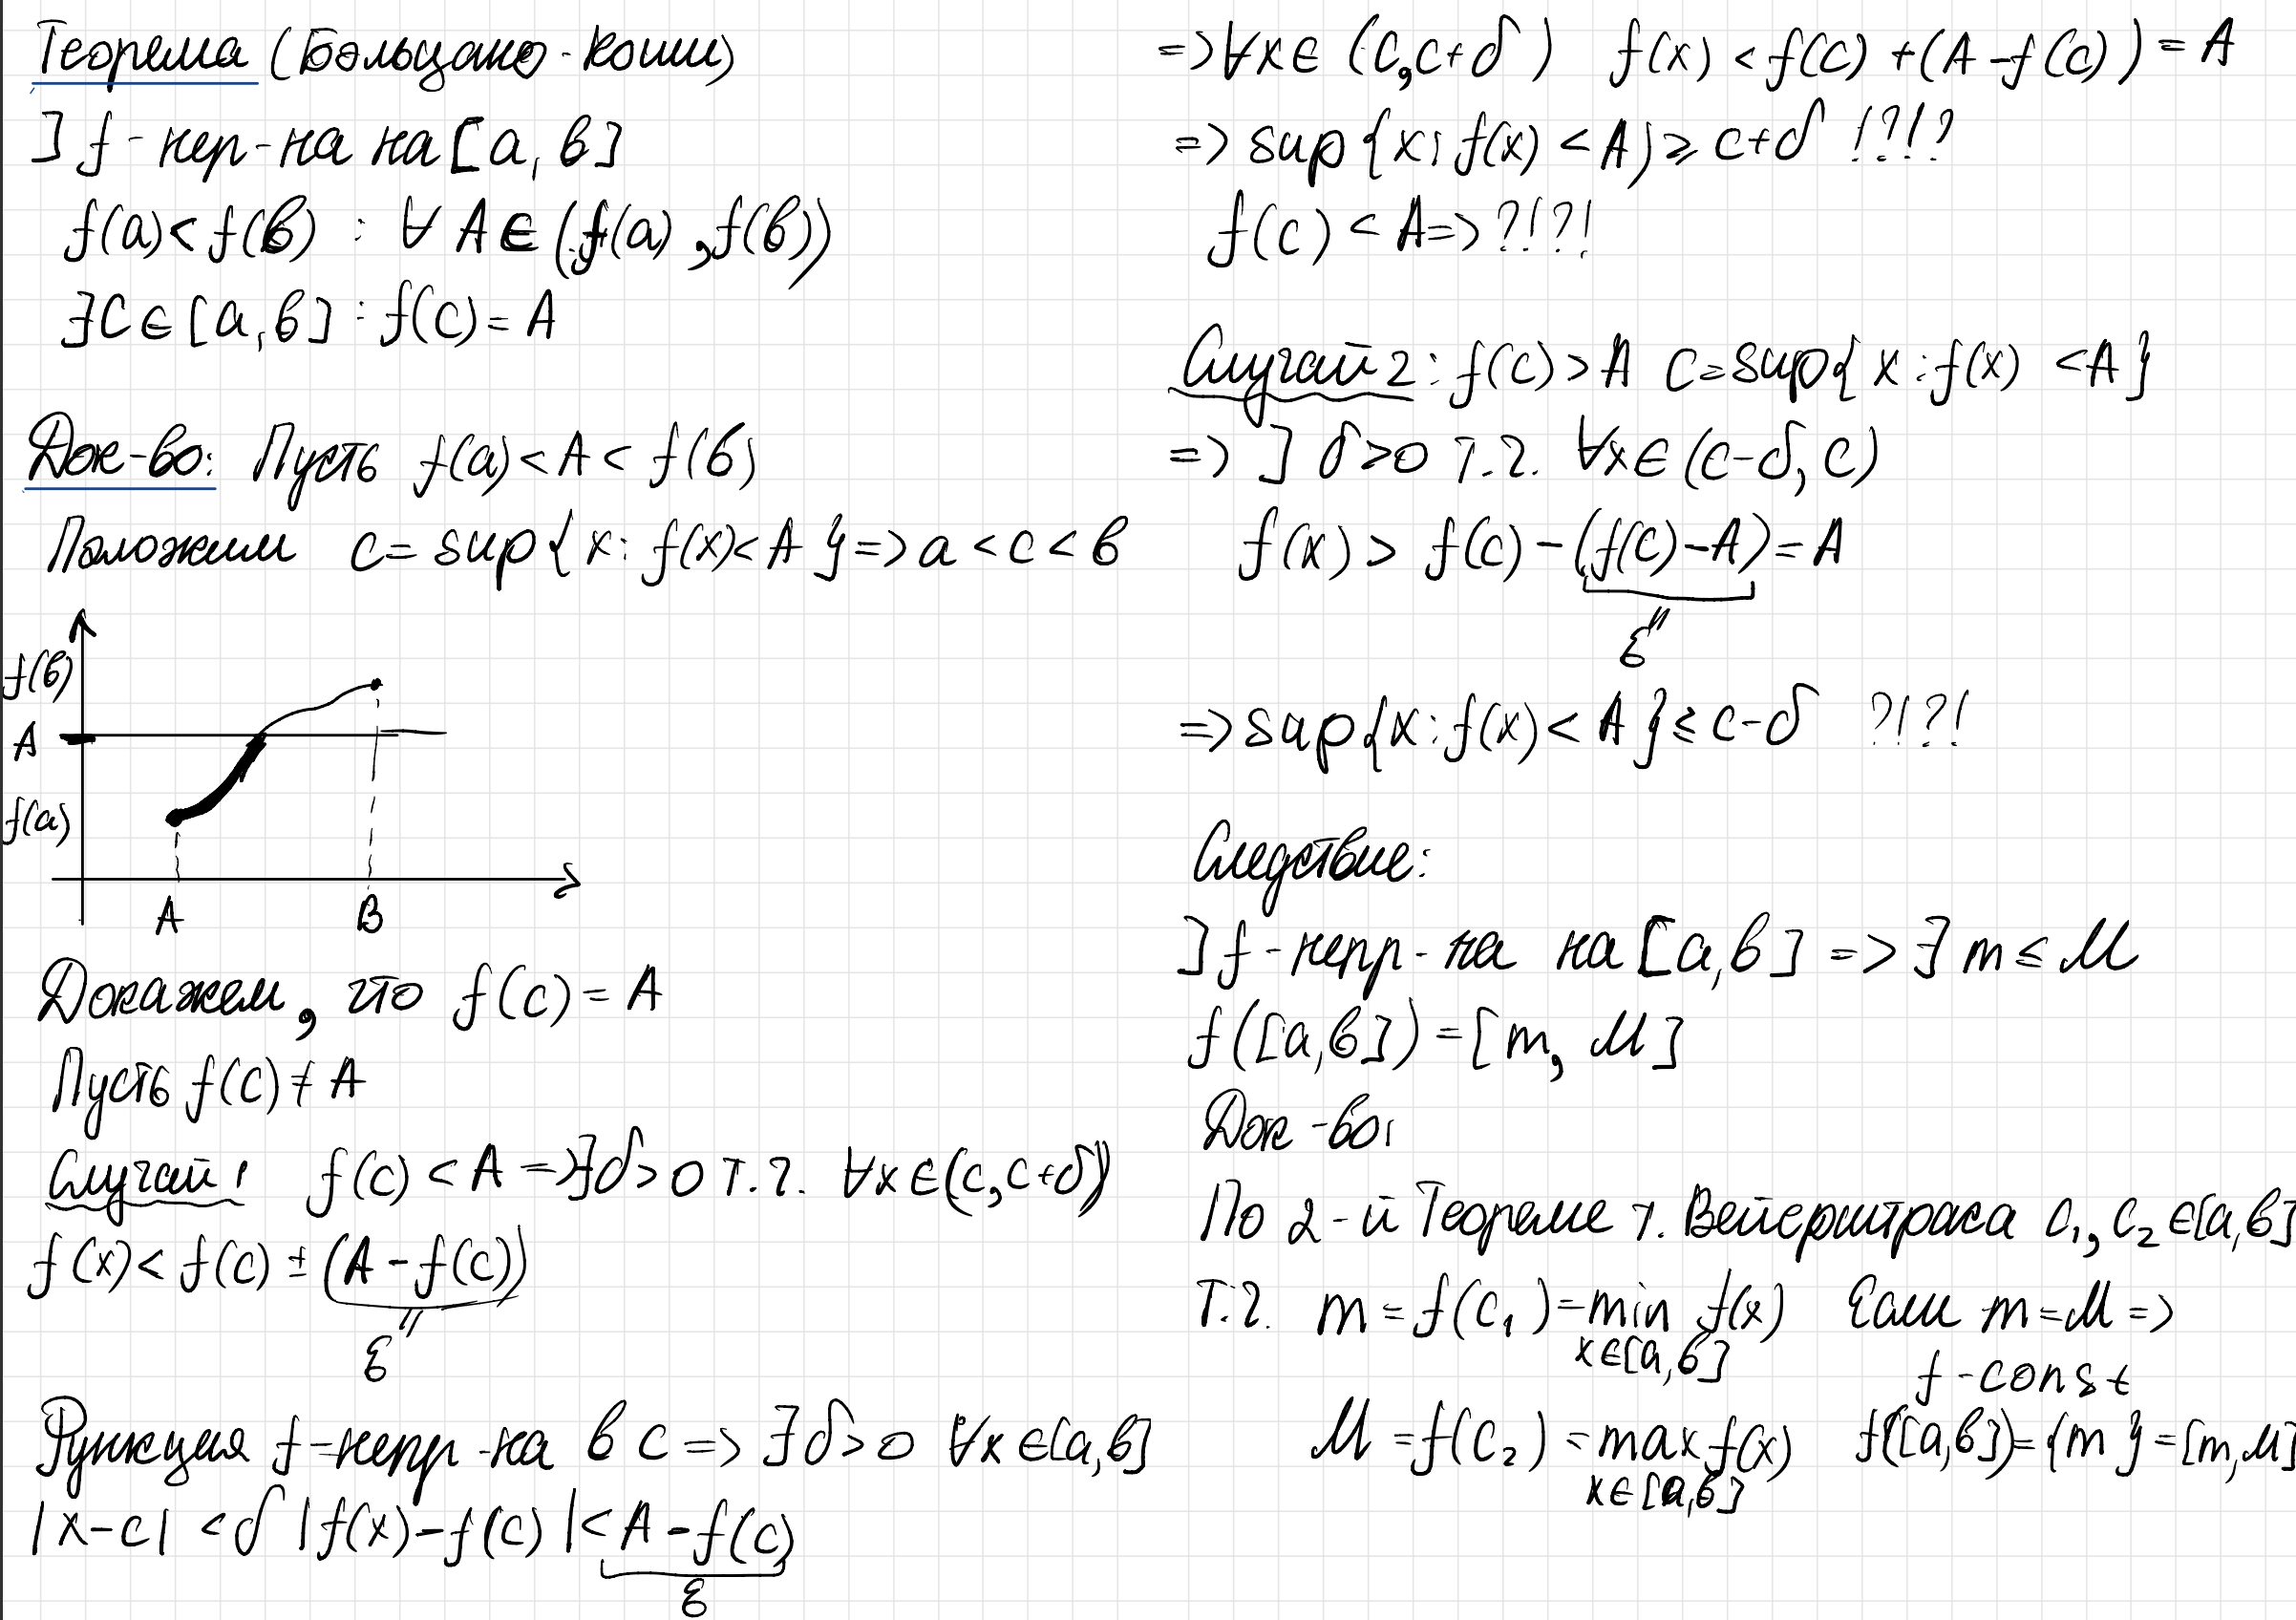 Теорема (Больцано-Коши)
] f - нер-на на [a, b]
f(a) < f(b) : ∀ A ∈ (f(a), f(b))
∃ C ∈ [a, b] : f(c) = A
Док-во: Пусть f(a) < A < f(b)
Положим c = sup{x : f(x) < A} => a < c < b
f(b)
A
f(a)
A B
Докажем, что f(c) = A
Пусть f(c) ≠ A
Случай 1 f(c) < A => ∃ δ > 0 т.ч. ∀x ∈ (c, c+δ)
f(x) < f(c) ± (A - f(c))
ε
Функция f - непр-на в c => ∃ δ > 0 ∀x ∈ [a, b]
|x - c| < δ |f(x) - f(c)| < A - f(c)
ε
=> ∀x ∈ (c, c+δ) f(x) < f(c) + (A - f(c)) = A
=> sup{x : f(x) < A} ⩾ c+δ !?!?
f(c) < A => ?!?!
Случай 2 : f(c) > A c = sup{x : f(x) < A}
=> ] δ > 0 т.ч. ∀x ∈ (c-δ, c)
f(x) > f(c) - (f(c) - A) = A
ε
=> sup{x : f(x) < A} ⩽ c-δ ?!?!
Следствие:
] f - непр-на на [a, b] => ∃ m ≤ M
f([a, b]) = [m, M]
Док-во:
По 2-й Теореме т. Вейерштраса c₁, c₂ ∈ [a, b]
т.ч. m = f(c₁) = min f(x) Если m = M =>
x ∈ [a, b]
f - const
M = f(c₂) = max f(x) f([a, b]) = {m} = [m, M]
x ∈ [a, b]